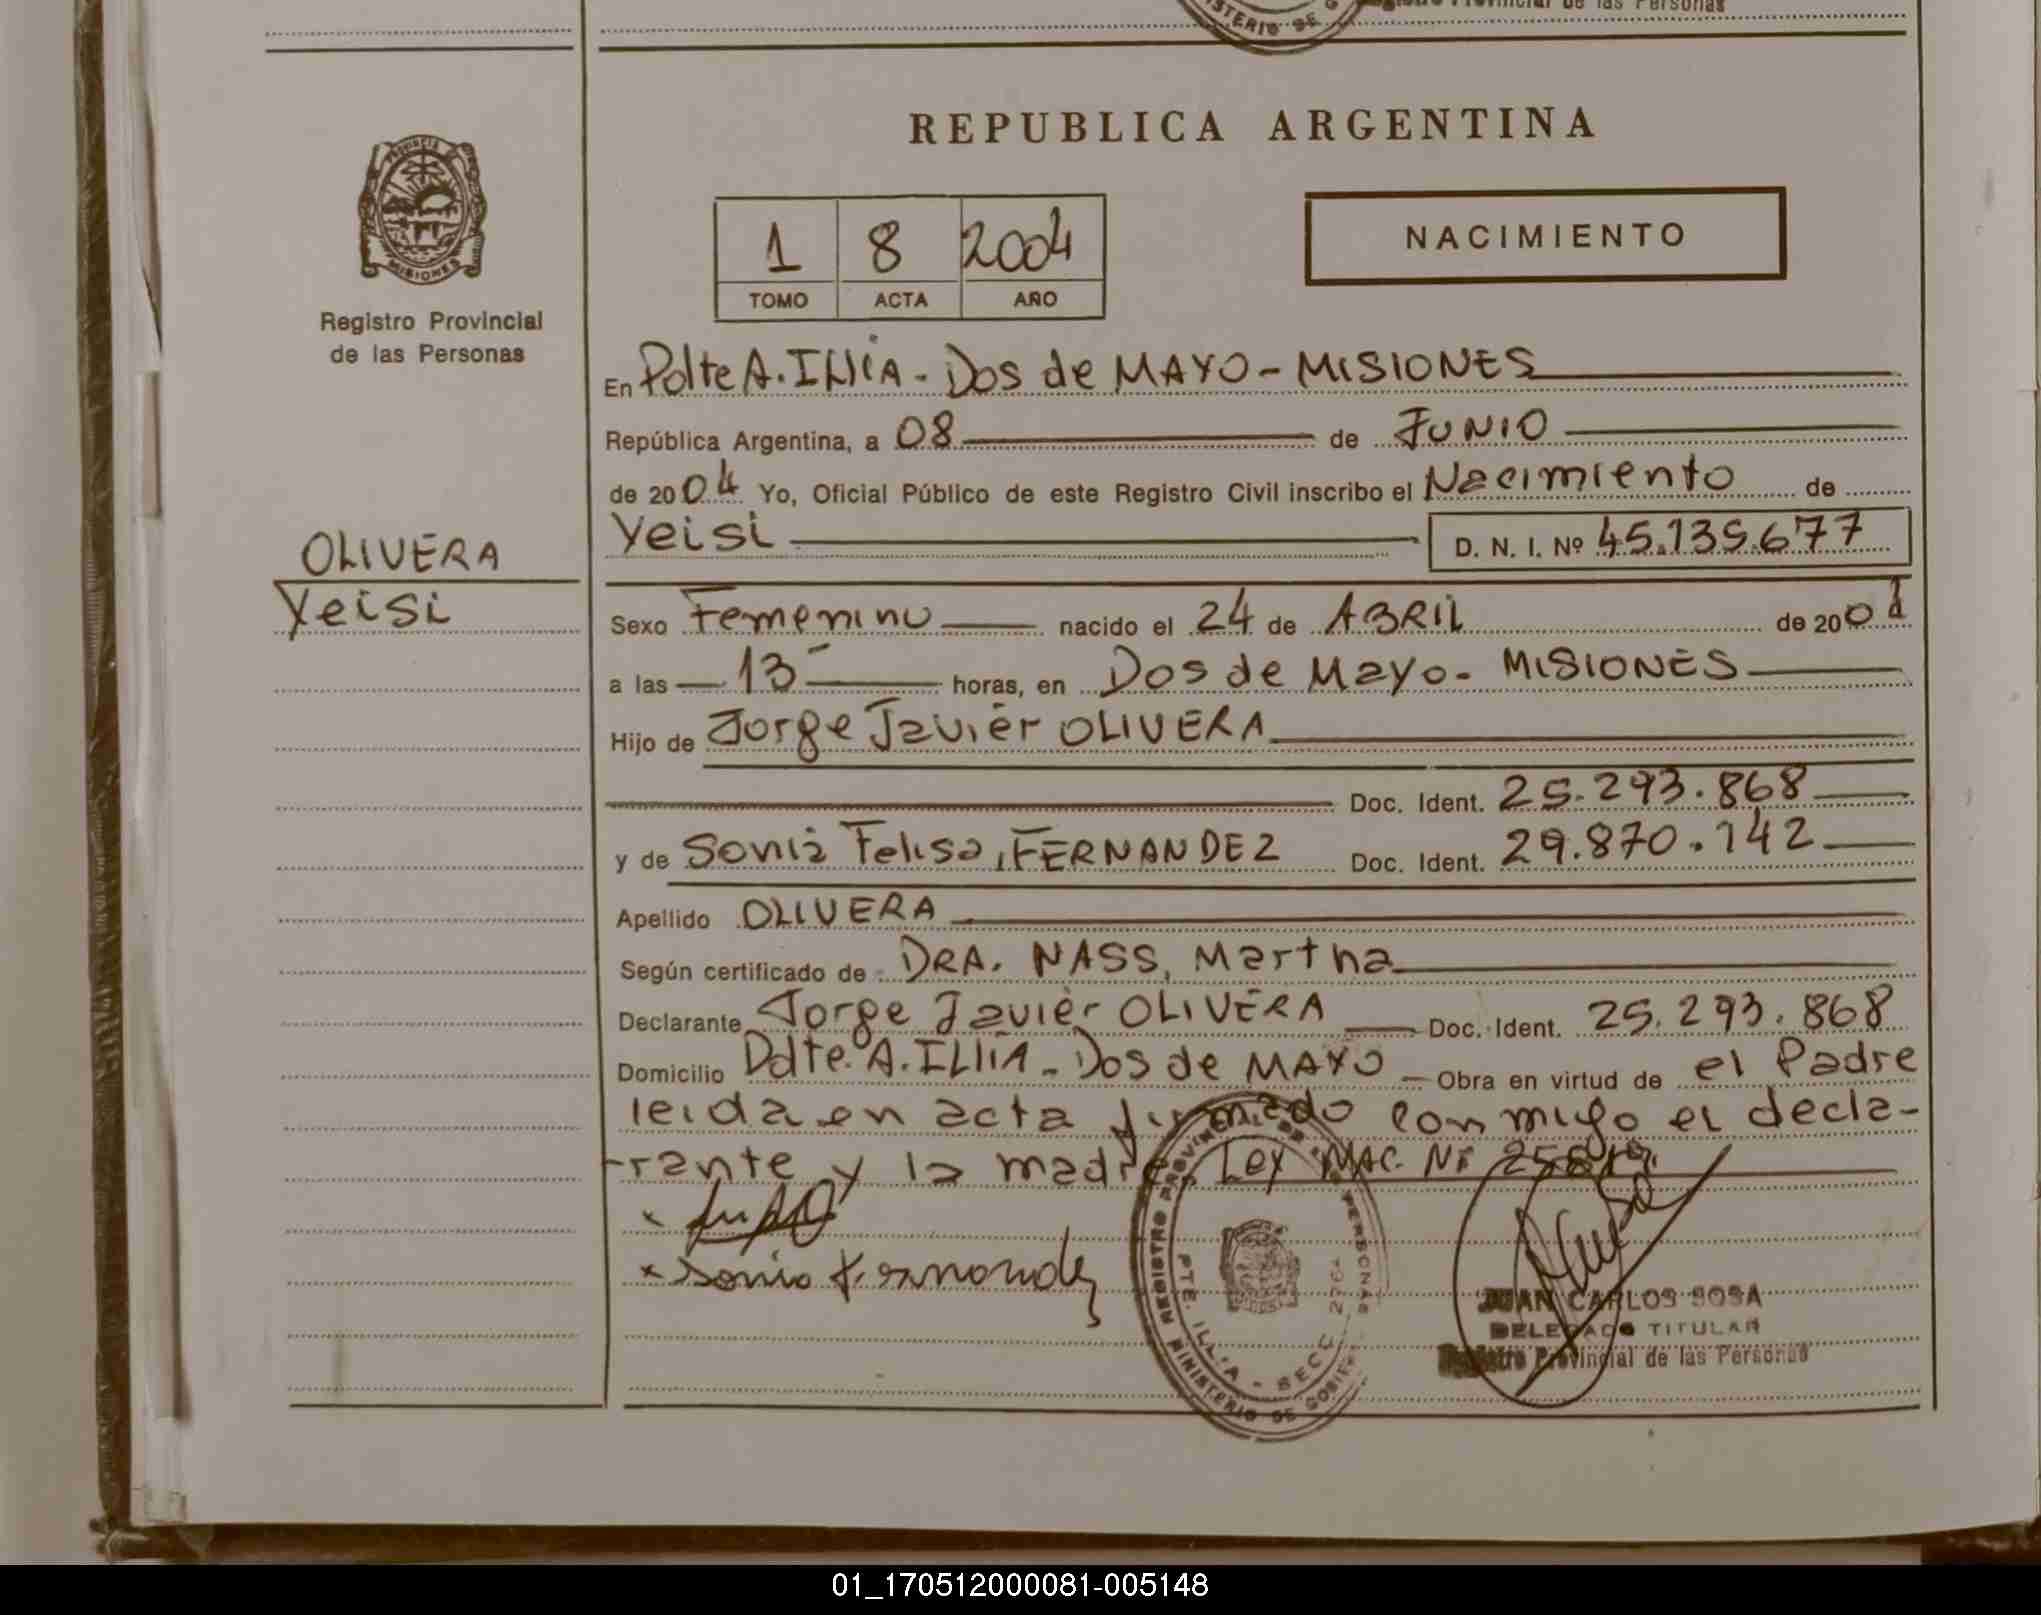 Registro Provincial de las Personas
MINISTERIO DE
REPUBLICA ARGENTINA
PROVINCIA DE
MISIONES
1 8 2004
TOMO ACTA AÑO
NACIMIENTO
Registro Provincial
de las Personas
En Pdte A. Illia - Dos de MAYO - MISIONES
República Argentina, a 08 de JUNIO
de 2004 Yo, Oficial Público de este Registro Civil inscribo el Nacimiento de
Yeisi D. N. I. Nº 45.135.677
OLIVERA
Yeisi
Sexo Femenino nacido el 24 de ABRIL de 200
a las 13 horas, en Dos de Mayo - MISIONES
Hijo de Jorge Javier OLIVERA
Doc. Ident. 25.293.868
y de Sonia Felisa, FERNANDEZ Doc. Ident. 29.870.142
Apellido OLIVERA
Según certificado de DRA. NASS, Martha
Declarante Jorge Javier OLIVERA Doc. Ident. 25.293.868
Domicilio Pdte. A. ILLIA - Dos de MAYO - Obra en virtud de el Padre
leida en acta firmado conmigo el decla-
rante y la madre Ley NAC. Nº
x
x Sonia Fernandez
REGISTRO PROVINCIAL DE LAS PERSONAS
PTE. ILLIA - SECC.
MINISTERIO DE GOBIER
JUAN CARLOS SOSA
DELEGADO TITULAR
Registro Provincial de las Personas
01_170512000081-005148